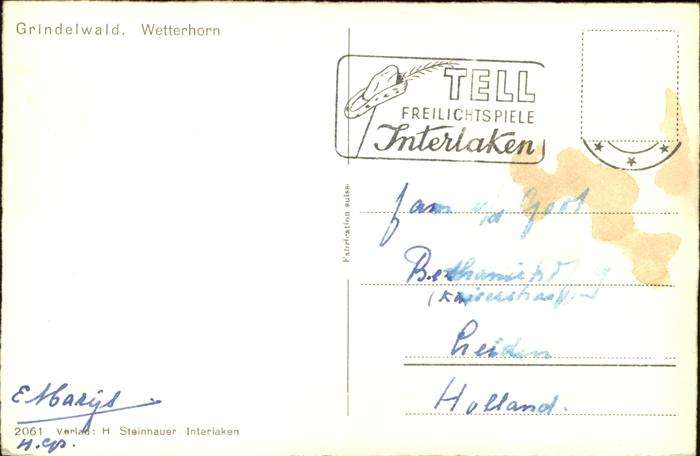 Grindelwald. Wetterhorn
TELL
FREILICHTSPIELE
Interlaken
Fabrication suisse
fam v/d Goot
Leiden
Holland.
E Marijs
2061 Verlag: H Steinhauer Interlaken